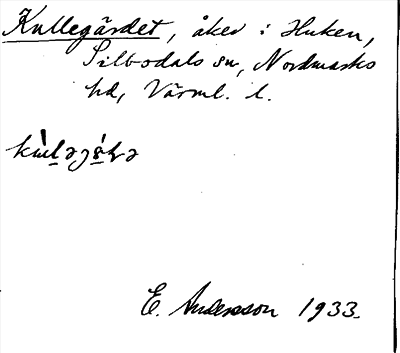 Kullegärdet, åker i Huken,
Silbodals sn, Nordmarks
hd, Värml. l.
E. Andersson 1933.